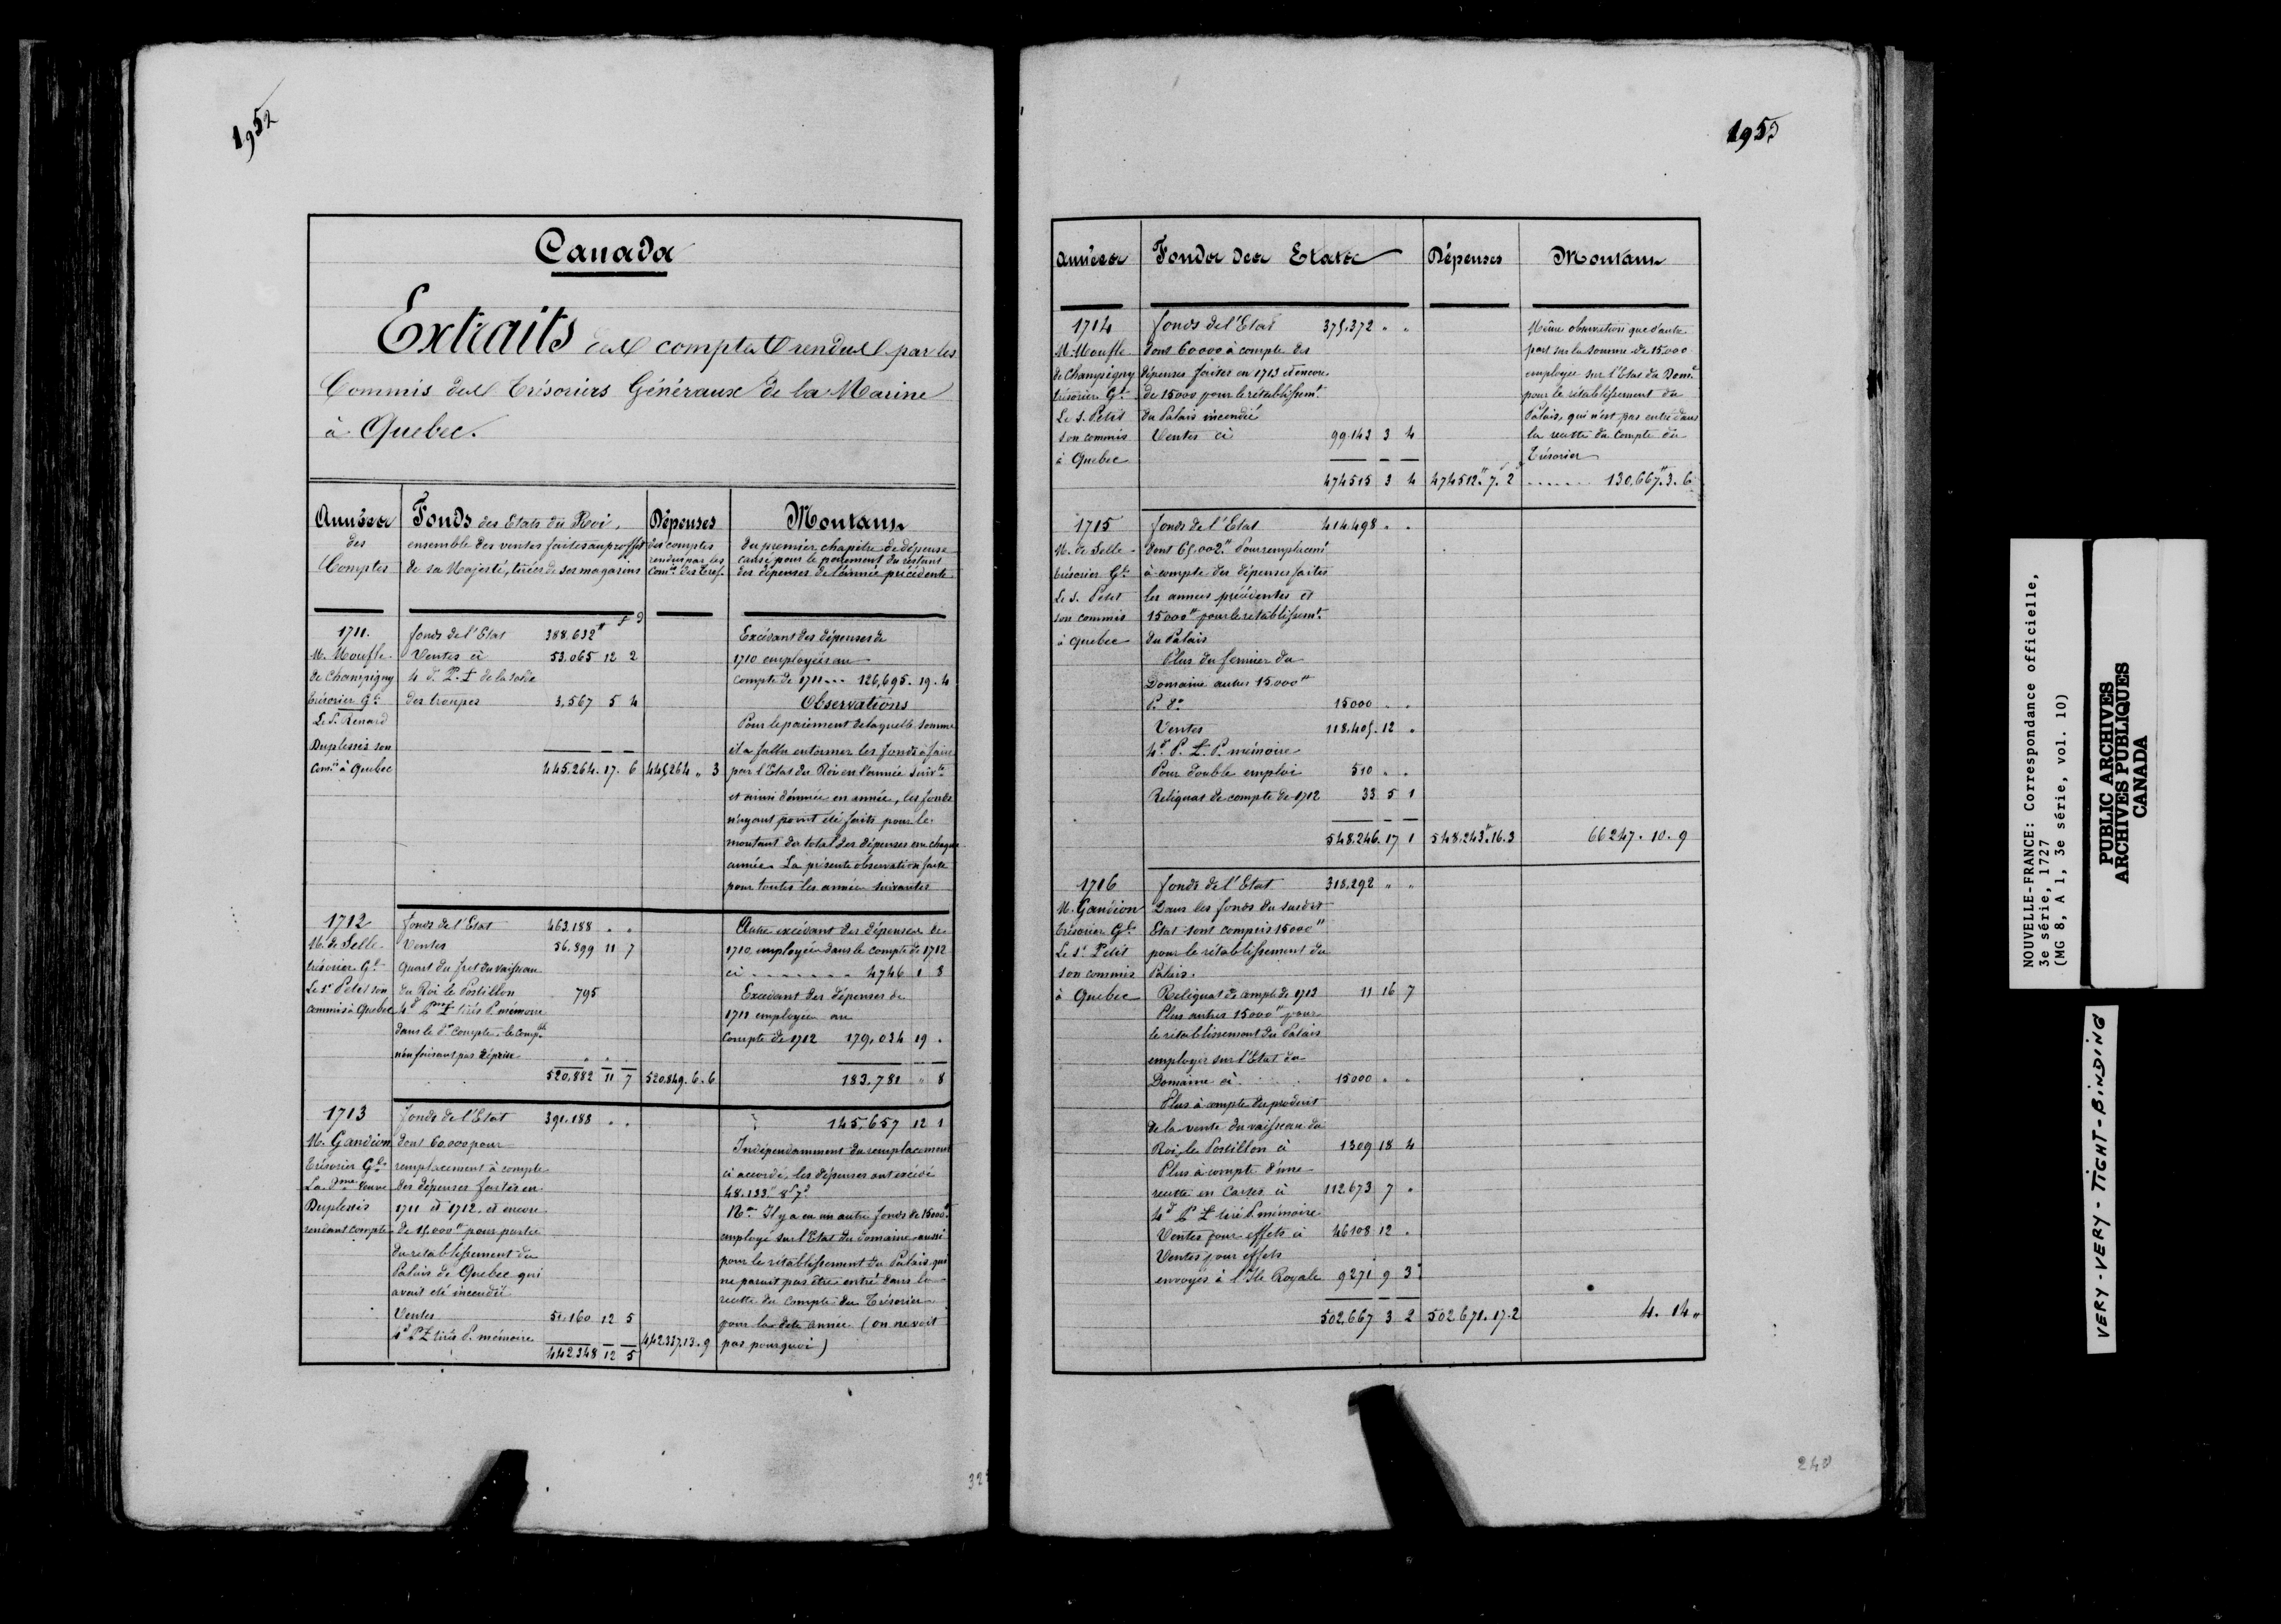 1952
Canada
Extraits des comptes rendus par les
Commis des Trésoriers Généraux de la Marine
à Quebec.
Années des Comptes
Fonds des Etats du Roi,
ensemble des ventes faites au proffit
de sa Majesté, tirées de ses magasins
Dépenses
des comptes
rendus par les
Comis des Tres.
Montans
du premier chapitre de dépense
causé pour le payement du restant
des dépenses de l'année précédente
1711.
M. Moufle
de Champigny
trésorier Gal
Le Sr. Renard
Duplessis son
Comis à Quebec
fonds de l'Etat 388.632# s d
Ventes ci 53.065 12 2
4 d. P. £ de la solde
des troupes 3.567 5 4
445.264. 17. 6
445,264 „ 3
Excédant des dépenses de
1710 employées au
compte de 1711 ... 126,695. 19. 4
Observations
Pour le paiment de laquelle somme
il a fallu entamer les fonds à faire
par l'Etat du Roi en l'année suivte
et ainsi d'année en année, les fonds
n'ayant point été faits pour le
montant du total des dépenses en chaque
année. La présente observation faite
pour toutes les années suivantes
1712
M. de Selle
trésorier Gal
Le Sr Petit son
commis à Quebec
fonds de l'Etat 463.188 . .
Ventes 56.899 11 7
Quart du fret du vaisseau
du Roi le Postillon 795
4d pour £ tirés P. mémoire
dans le dr compte, le comptble
n'en faisant pas dépense . . .
520,882 11 7
520,849. 6. 6
Autre excédant des dépenses de
1710 employée dans le compte de 1712
ci ........ 4746 1 8
Excédant des dépenses de
1711 employée au
compte de 1712 179,034 19 .
183.781 „ 8
1713
M. Gandion
Trésorier Gal
La Dme Veuve
Duplessis
rendant compte
fonds de l'Etat 391.188 . .
dont 60.000 pour
remplacement à compte
des dépenses faites en
1711 et 1712, et encore
de 15,000# pour partie
du rétablissement du
Palais de Quebec qui
avait été incendié
Ventes 51.160 12 5
4d P £ tirés P. mémoire
442348 12 5
442337.13.9
145.657 12 1
Indépendamment du remplacement
ci accordé, les dépenses ont excédé
48.133# 8s 7d
Na Il y a eu un autre fonds de 15000#
employé sur l'Etat du domaine aussi
pour le rétablissement du Palais qui
ne parait pas être entré dans la
recette du compte du Trésorier
pour la dite année (on ne voit
pas pourquoi)
1953
Années
Fonds des Etats
Dépenses
Montans
1714
M. Moufle
de Champigny
trésorier Gal
Le S. Petit
son commis
à Quebec
fonds de l'Etat 375.372 „ „
dont 60000 à compte des
dépenses faites en 1713 et encore
de 15000 pour le rétablissemt
du Palais incendié
Ventes ci 99.143 3 4
474515 3 4
474512# 7s 2d
Même observation que d'autre
part sur la somme de 15.000
employee sur l'Etat du Dome
pour le rétablissement du
Palais, qui n'est pas entré dans
la recette du compte du
Trésorier
...... 130.667#. 3. 6
1715
M. de Selle
trésorier Gal
Le S. Petit
son commis
à Quebec
fonds de l'Etat 414498 . .
dont 65.002# Pour remplacemt
à compte des dépenses faites
les années précédentes et
15000# pour le retablissemt
du Palais
Plus du fermier du
Domaine autres 15.000#
P. do 15000 . .
Ventes 118.405. 12 .
4d. P. £ P. mémoire
Pour double emploi 510 . .
Reliquat de compte de 1712 33 5 1
548.246. 17 1
548.243#.16.3
66247. 10. 9
1716
M. Gandion
trésorier Gal
Le Sr Petit
son commis
à Quebec
fonds de l'Etat 318.292 „ „
Dans les fonds du susdit
Etat sont compris 15000#
pour le rétablissement du
Palais.
Reliquat de compte de 1713 11 16 7
Plus autres 15000# pour
le rétablissement du Palais
employés sur l'Etat du
Domaine ci 15000 . .
Plus à compte du produit
de la vente du vaisseau du
Roi, le Postillon ci 1309 18 4
Plus à compte d'une
recette en Cartes ci 112673 7 .
4d P £ tiré P. mémoire
Ventes pour effets ci 46108 12 .
Ventes pour effets
envoyés à l'Ile Royale 9271 9 3
502,667 3 2
502.671.17.2
4. 14 „
240
NOUVELLE-FRANCE: Correspondance officielle,
3e série, 1727
(MG 8, A 1, 3e série, vol. 10)
PUBLIC ARCHIVES
ARCHIVES PUBLIQUES
CANADA
VERY-VERY-TIGHT-BINDING